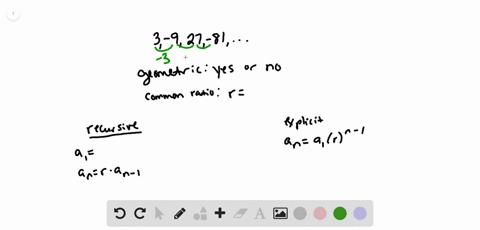 3, -9, 27, -81, ...
-3
geometric: yes or no
common ratio: r=
recursive
a₁=
aₙ=r·aₙ₋₁
explicit
aₙ=a₁(r)ⁿ⁻¹